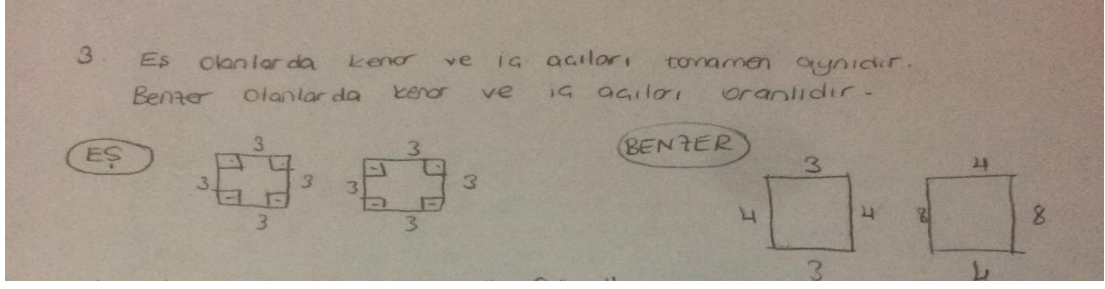 3. Eş olanlarda kenar ve iç açıları tamamen aynıdır.
Benzer olanlarda kenar ve iç açıları oranlıdır.
EŞ
BENZER
3 3
3 3 3 3
3 3
3 4
4 4 8 8
3 4